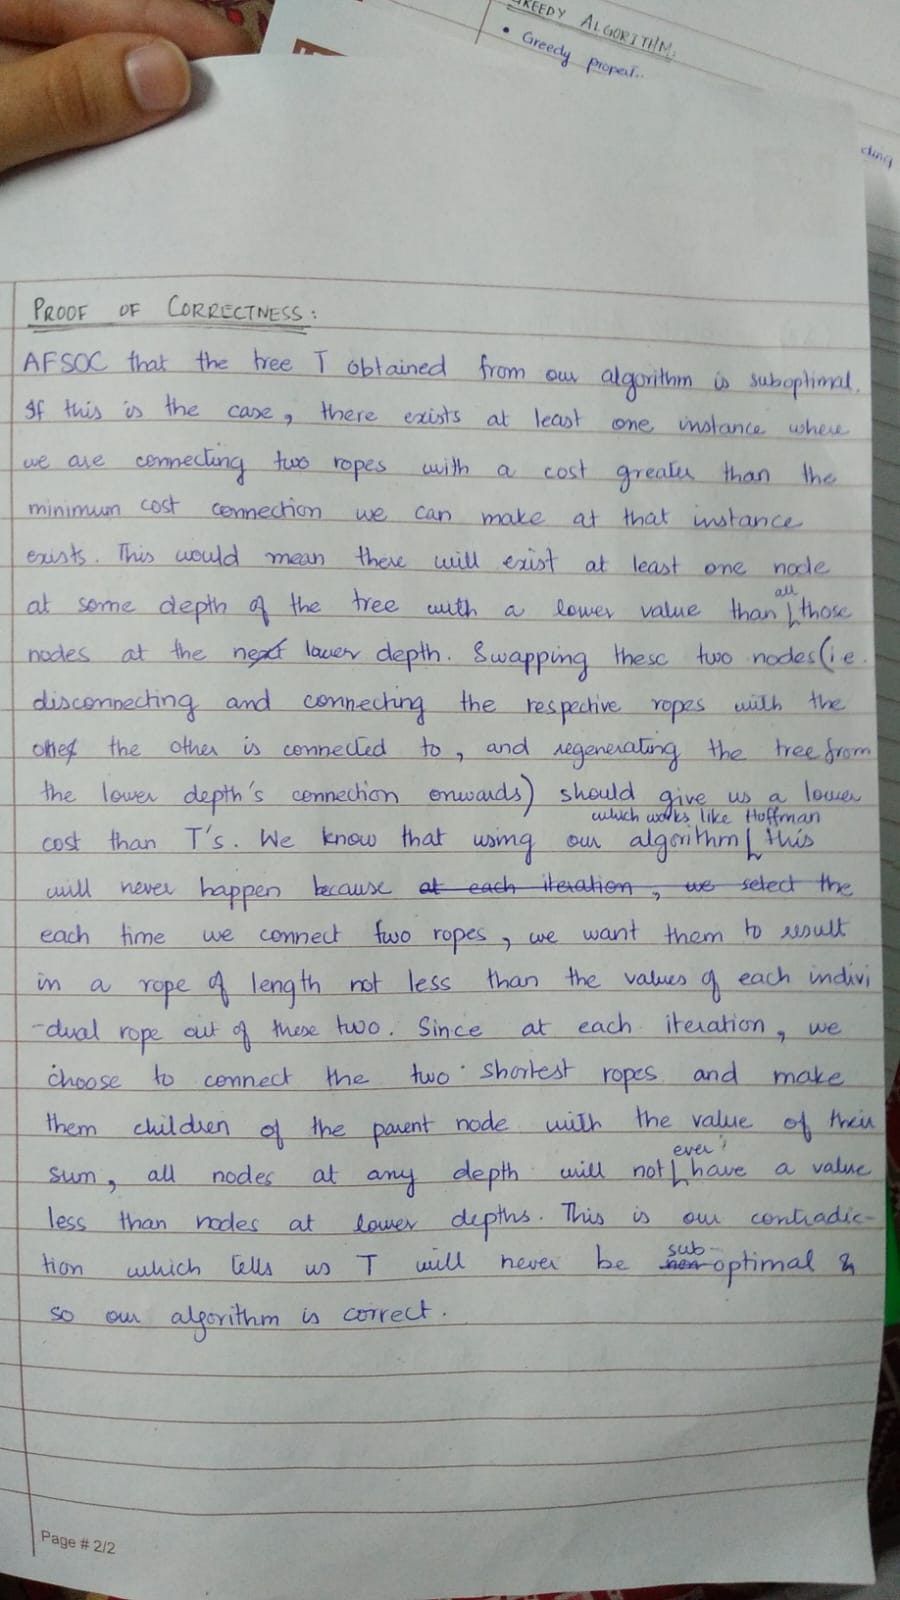 GREEDY ALGORITHM.
• Greedy propert..
PROOF OF CORRECTNESS:
AFSOC that the tree T obtained from our algorithm is suboptimal.
If this is the case, there exists at least one instance where
we are connecting two ropes with a cost greater than the
minimum cost connection we can make at that instance
exists. This would mean there will exist at least one node
at some depth of the tree with a lower value than all those
nodes at the next lower depth. Swapping these two nodes (i.e.
disconnecting and connecting the respective ropes with the
ones the other is connected to, and regenerating the tree from
the lower depth's connection onwards) should give us a lower
cost than T's. We know that using our algorithm which works like Hoffman this
will never happen because at each iteration, we select the
each time we connect two ropes, we want them to result
in a rope of length not less than the values of each indivi
-dual rope out of these two. Since at each iteration, we
choose to connect the two shortest ropes and make
them children of the parent node with the value of their
sum, all nodes at any depth will not ever have a value
less than nodes at lower depths. This is our contradic-
tion which tells us T will never be sub-optimal &
so our algorithm is correct.
Page # 2/2